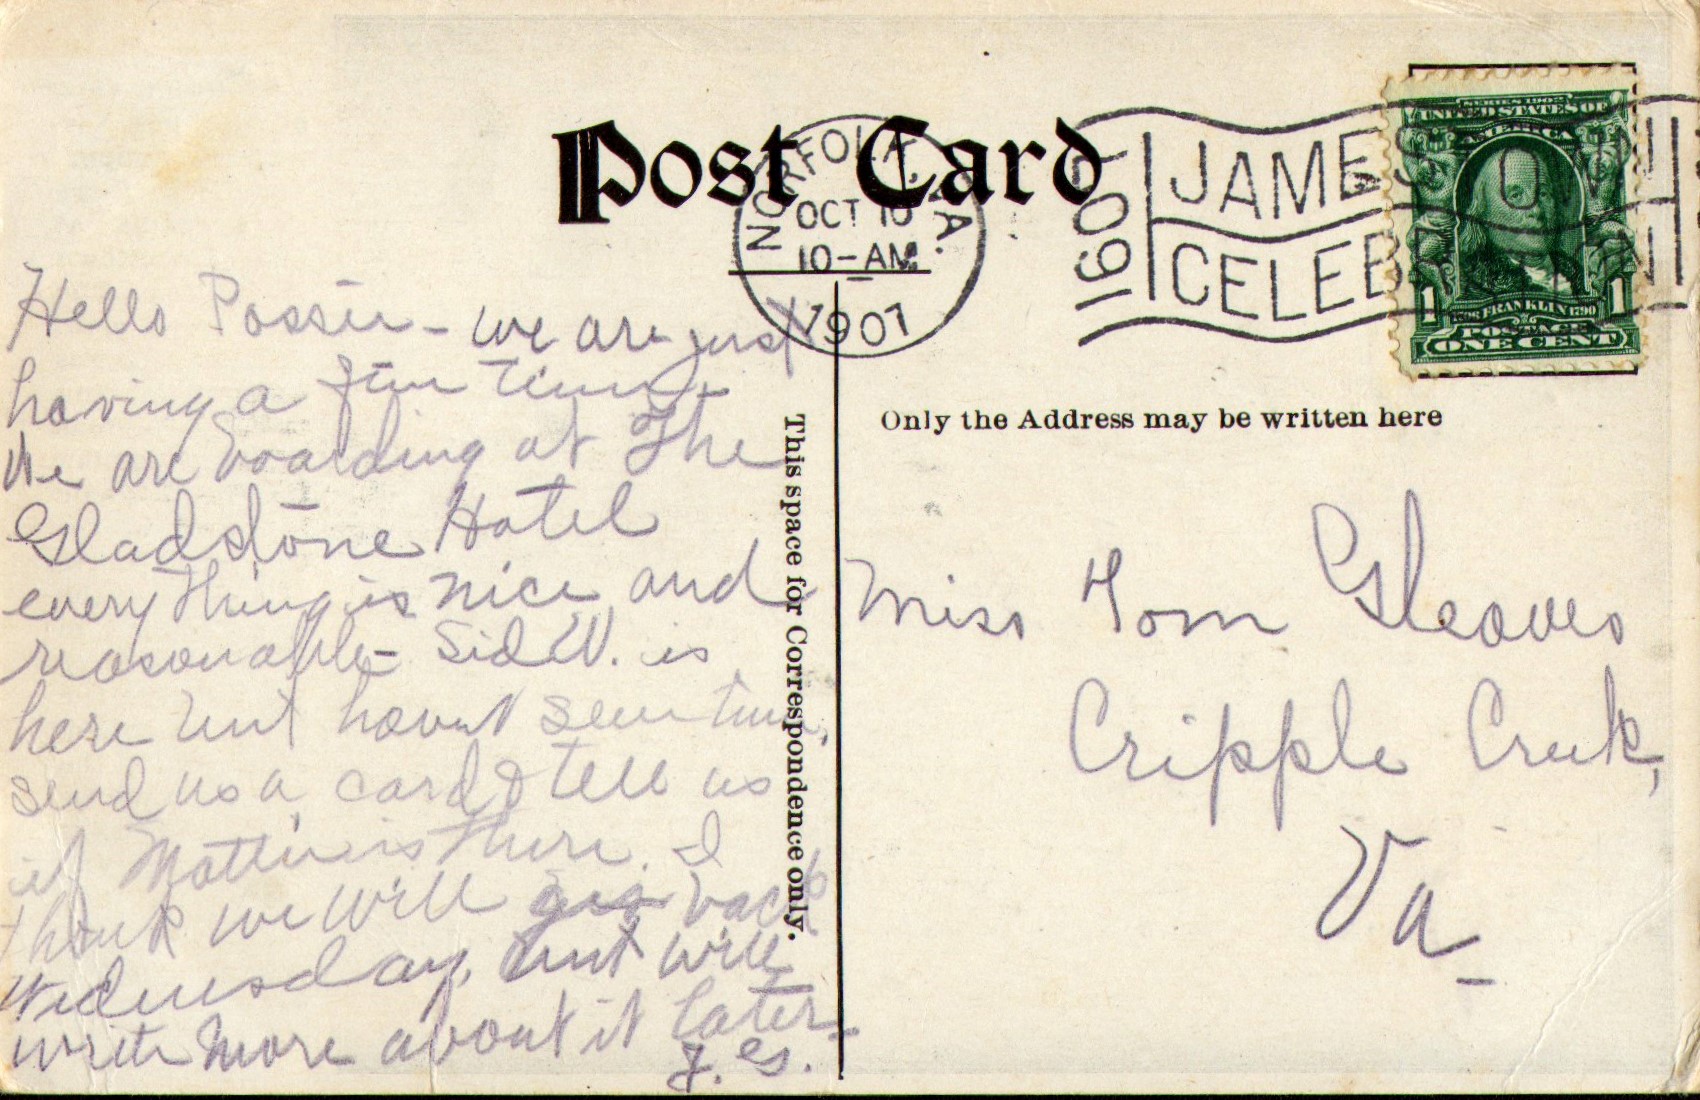 Post Card
NORFOLK, VA.
OCT 10
10-AM
1907
1907
JAMESTOWN
CELEB
SERIES 1902
UNITED STATES OF
AMERICA
1 FRANKLIN 1790 1
POSTAGE
ONE CENT
This space for Correspondence only.
Only the Address may be written here
Hello - we are just
having a fine time
We are boarding at The
Gladstone Hotel
everything is nice and
reasonable - Sid W. is
here but havent seen him,
send us a card & tell us
if is there. I
think we will go back
Wednesday, but will
write more about it later -
J. G.
Miss Tom Gleaves
Cripple Creek,
Va -